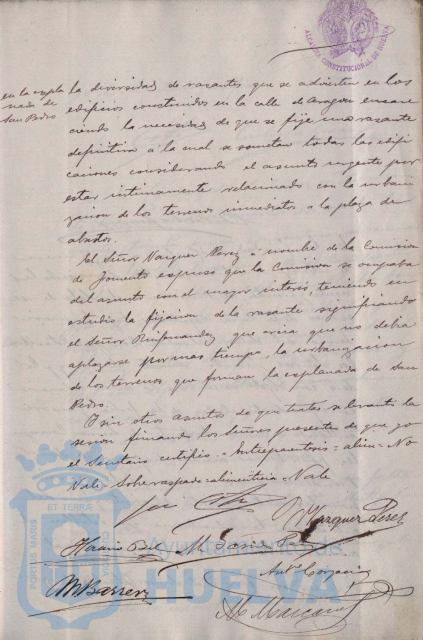 ALCALDIA CONSTITUCIONAL DE HUELVA
en la expla
nada de
San Pedro
la diversidad de rasantes que se advierten en los
edificios construidos en la calle de Aragon encare
ciendo la necesidad de que se fije una rasante
definitiva á la cual se sometan todas las edifi
caciones considerando el asunto urgente por
estar intimamente relacionado con la urbani
zacion de los terrenos inmediatos a la plaza de
abastos.
El Señor Vazquez Perez á nombre de la Comision
de Fomento expuso que la Comision se ocupaba
del asunto con el mayor interés, teniendo en
estudio la fijacion de la rasante significando
el Señor que creia que no debia
aplazarse por mas tiempo, la urbanizacion
de los terrenos que forman la explanada de San
Pedro.
Y sin otros asuntos de que tratar se levantó la
sesion firmando los Señores presentes de que yo
el Secretario certifico = Entreparentesis = alim = No
Vale Sobreraspado = alimenticia = Vale
Vazquez Perez
M. Garcia
M Barrera
Ayuntamiento de
HUELVA
PORTUS MARIS
ET TERRÆ
CUSTODIO